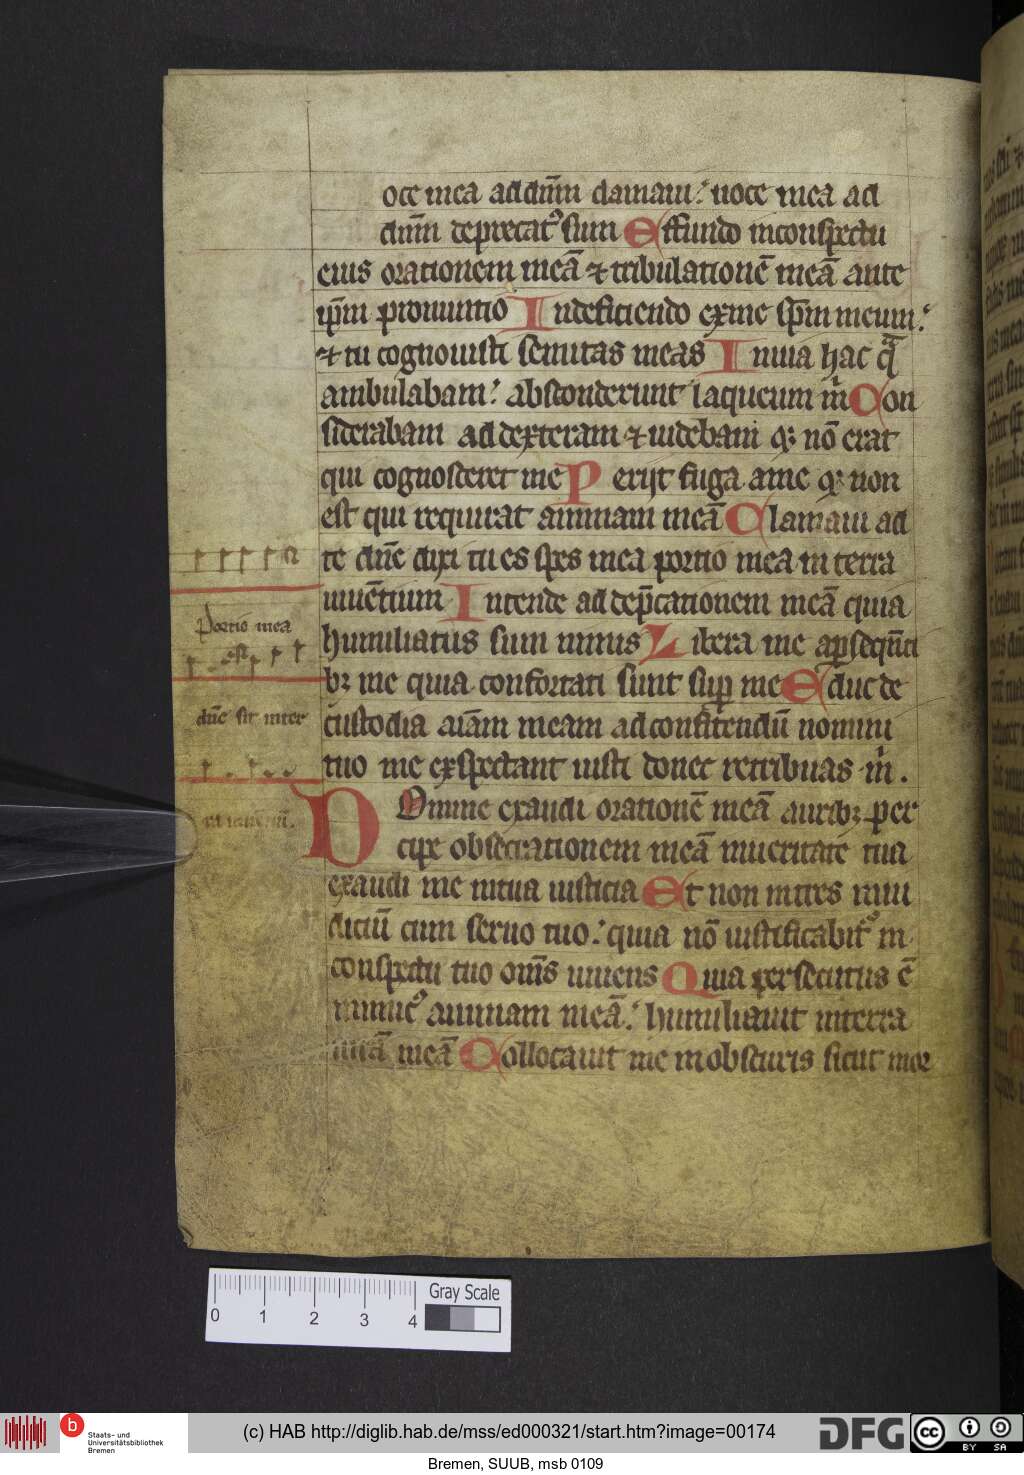 oce mea ad dn̄m clamaui: uoce mea ad
dn̄m deprecatꝰ sum Effundo inconspectu
eius orationem meā ⁊ tribulationē meā ante
ip̄m pronuntio Indeficiendo exme sp̄m meum:
⁊ tu cognouisti semitas meas Inuia hac q̄
ambulabam: absconderunt laqueum m̄ Con
siderabam ad dexteram ⁊ uidebam qꝛ nō erat
qui cognosceret me Perijt fuga ame qꝛ non
est qui requirat animam meā Clamaui ad
te dn̄e dixi tu es spes mea portio mea in terra
uiuētium Intende ad dep̄cationem meā quia
humiliatus sum nimis Libera me aꝑseqn̄ti
bꝫ me quia confortati sunt suꝑ me Educ de
custodia aīam meam ad confitendū nomini
tuo me exspectant iusti donec retribuas m̄.
Domine exaudi orationē meā auribꝫ per
cipe obsecrationem meā inueritate tua
exaudi me intua iusticia Et non intres iniu
diciū cum seruo tuo: quia nō iustificabitꝰ in
conspectu tuo om̄s uiuens Quia persecutus ē
inimicꝰ animam meā: humiliauit interra
uitā meā Collocauit me inobscuris sicut mor
Portio mea
dn̄e sit inter
ra uiuentiū.
0 1 2 3 4
Gray Scale
b Staats- und
Universitätsbibliothek
Bremen
(c) HAB http://diglib.hab.de/mss/ed000321/start.htm?image=00174
DFG cc BY SA
Bremen, SUUB, msb 0109